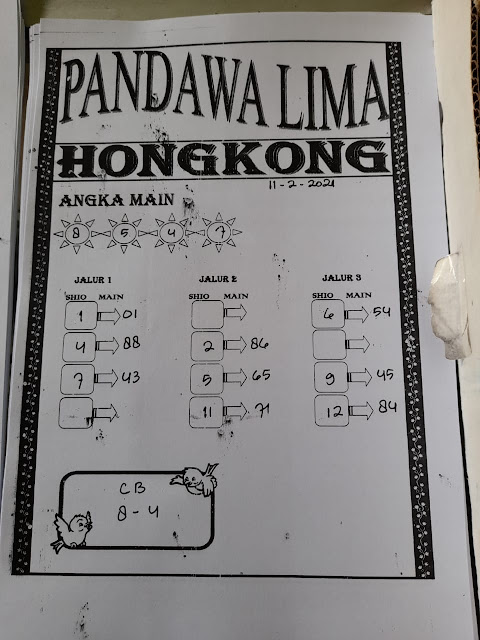 PANDAWA LIMA
HONGKONG
11-2-2021
ANGKA MAIN
8 5 4 7
JALUR 1 JALUR 2 JALUR 3
SHIO MAIN SHIO MAIN SHIO MAIN
1 01 6 54
4 88 2 86
7 43 5 65 9 45
11 71 12 84
CB
8-4